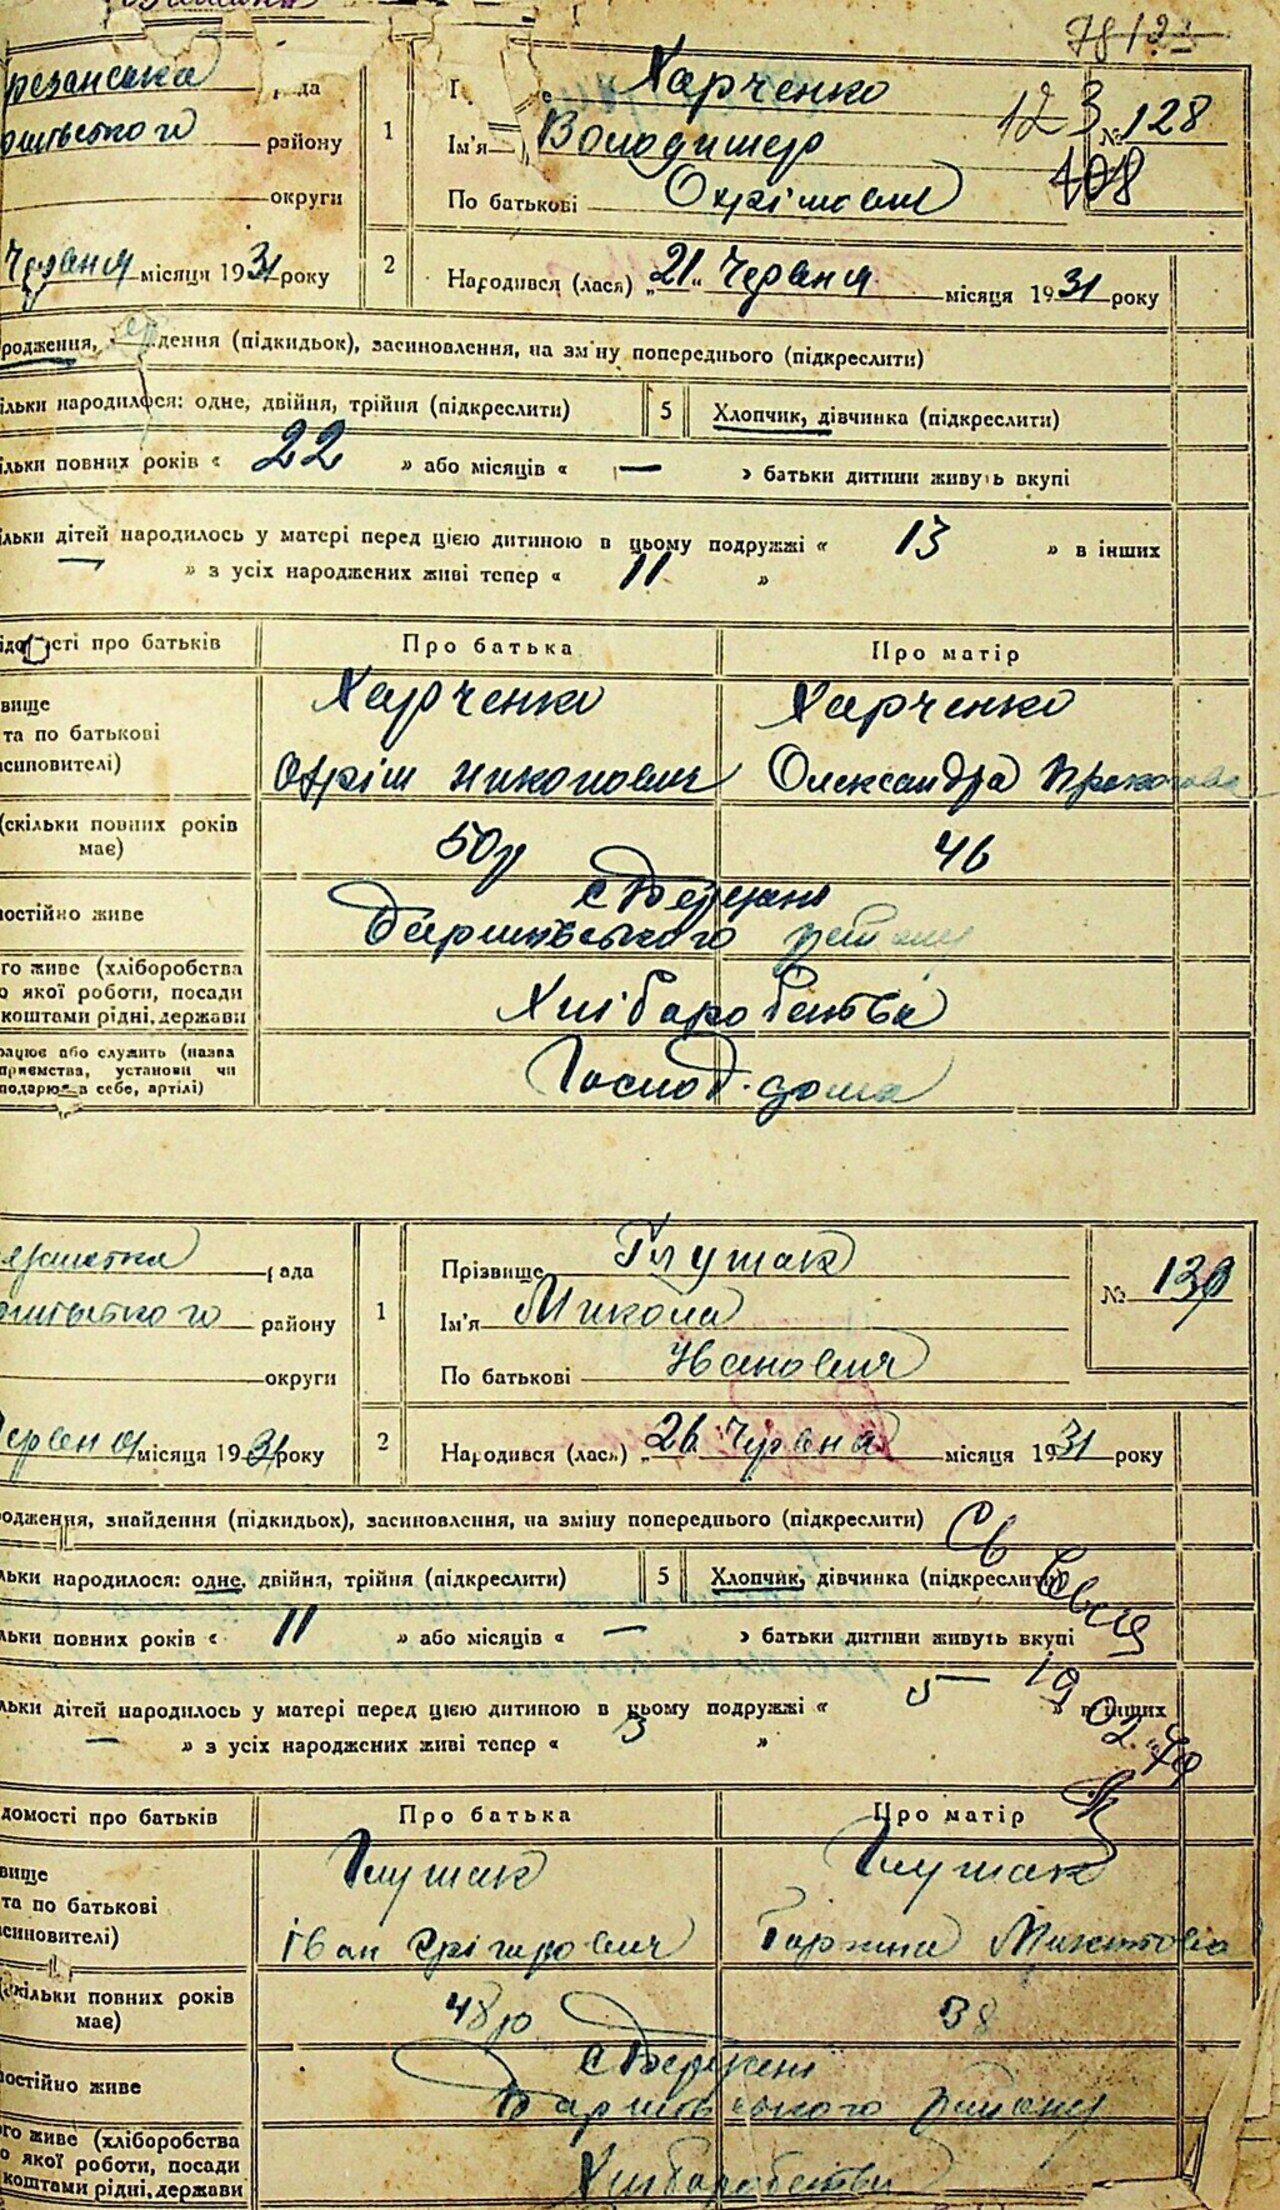 78/23
резанська рада
района району
округи
Червня місяця 1931 року
1
Харченко
Ім'я Володимер
По батькові Охрімович
123 № 128
108
2 Народився (лася) „21“ Червня місяця 1931 року
родження, дення (підкидьок), засиновлення, на зміну попереднього (підкреслити)
ільки народилося: одне, двійня, трійня (підкреслити) 5 Хлопчик, дівчинка (підкреслити)
ільки повних років « 22 » або місяців « — » батьки дитини живуть вкупі
ільки дітей народилось у матері перед цією дитиною в цьому подружжі « 13 » в інших
— » з усіх народжених живі тепер « 11 »
ідомості про батьків Про батька Про матір
вище
та по батькові
синовителі)
Харченко Харченко
Охрім Никонович Олександра
(скільки повних років
має)
50р 46
постійно живе
с Березані
Баришівського району
го живе (хліборобства
о якої роботи, посади
коштами рідні, держави
Хліборобства
рацює або служить (назва
приємства, установи чи
подарює в себе, артілі)
Господ. дома
рада
району
округи
Червня місяця 1931 року
1
Прізвище Глушак
Ім'я Микола
По батькові Иванович
№ 130
2 Народився (лася) „26 Червня місяця 1931 року
одження, знайдення (підкидьок), засиновлення, на зміну попереднього (підкреслити)
льки народилося: одне, двійня, трійня (підкреслити) 5 Хлопчик, дівчинка (підкреслити)
льки повних років « 11 » або місяців « — » батьки дитини живуть вкупі
льки дітей народилось у матері перед цією дитиною в цьому подружжі « 5 » в інших
— » з усіх народжених живі тепер « 3 »
Св
19 02
домості про батьків Про батька Про матір
вище
та по батькові
синовителі)
Глушак Глушак
Іван Грігорович
(скільки повних років
має)
48р 38
постійно живе
с Березані
Баришівського району
ого живе (хліборобства
о якої роботи, посади
коштами рідні, держави
Хліборобства